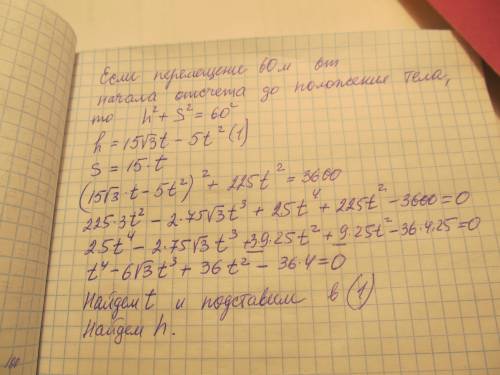 Если перемещение 60 м от
начала отсчета до положения тела,
то h² + S² = 60²
h = 15√3t − 5t² (1)
S = 15·t
(15√3·t − 5t²)² + 225t² = 3600
225·3t² − 2·75√3t³ + 25t⁴ + 225t² − 3600 = 0
25t⁴ − 2·75√3t³ + 39·25t² + 9·25t² − 36·4·25 = 0
t⁴ − 6√3t³ + 36t² − 36·4 = 0
Найдем t и подставим в (1)
Найдем h.